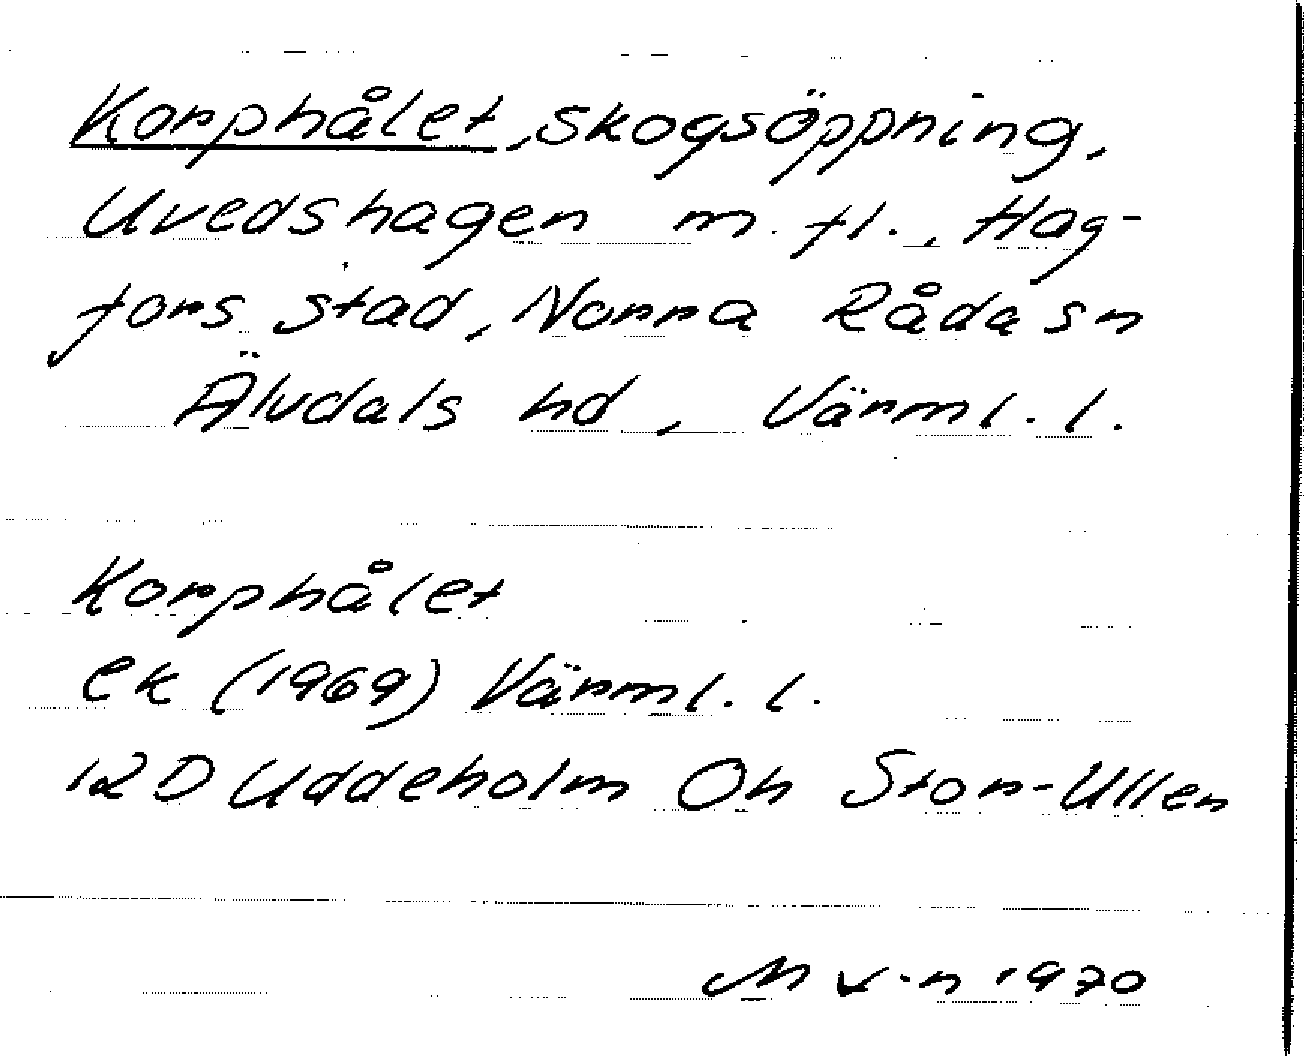 Korphålet, skogsöppning,
Uvedshagen m. fl., Hag-
fors stad, Norra Råda sn
Älvdals hd, Värml. l.
Korphålet
ek (1969) Värml. l.
12D Uddeholm Öh Stor-Ullen
M v.n 1970